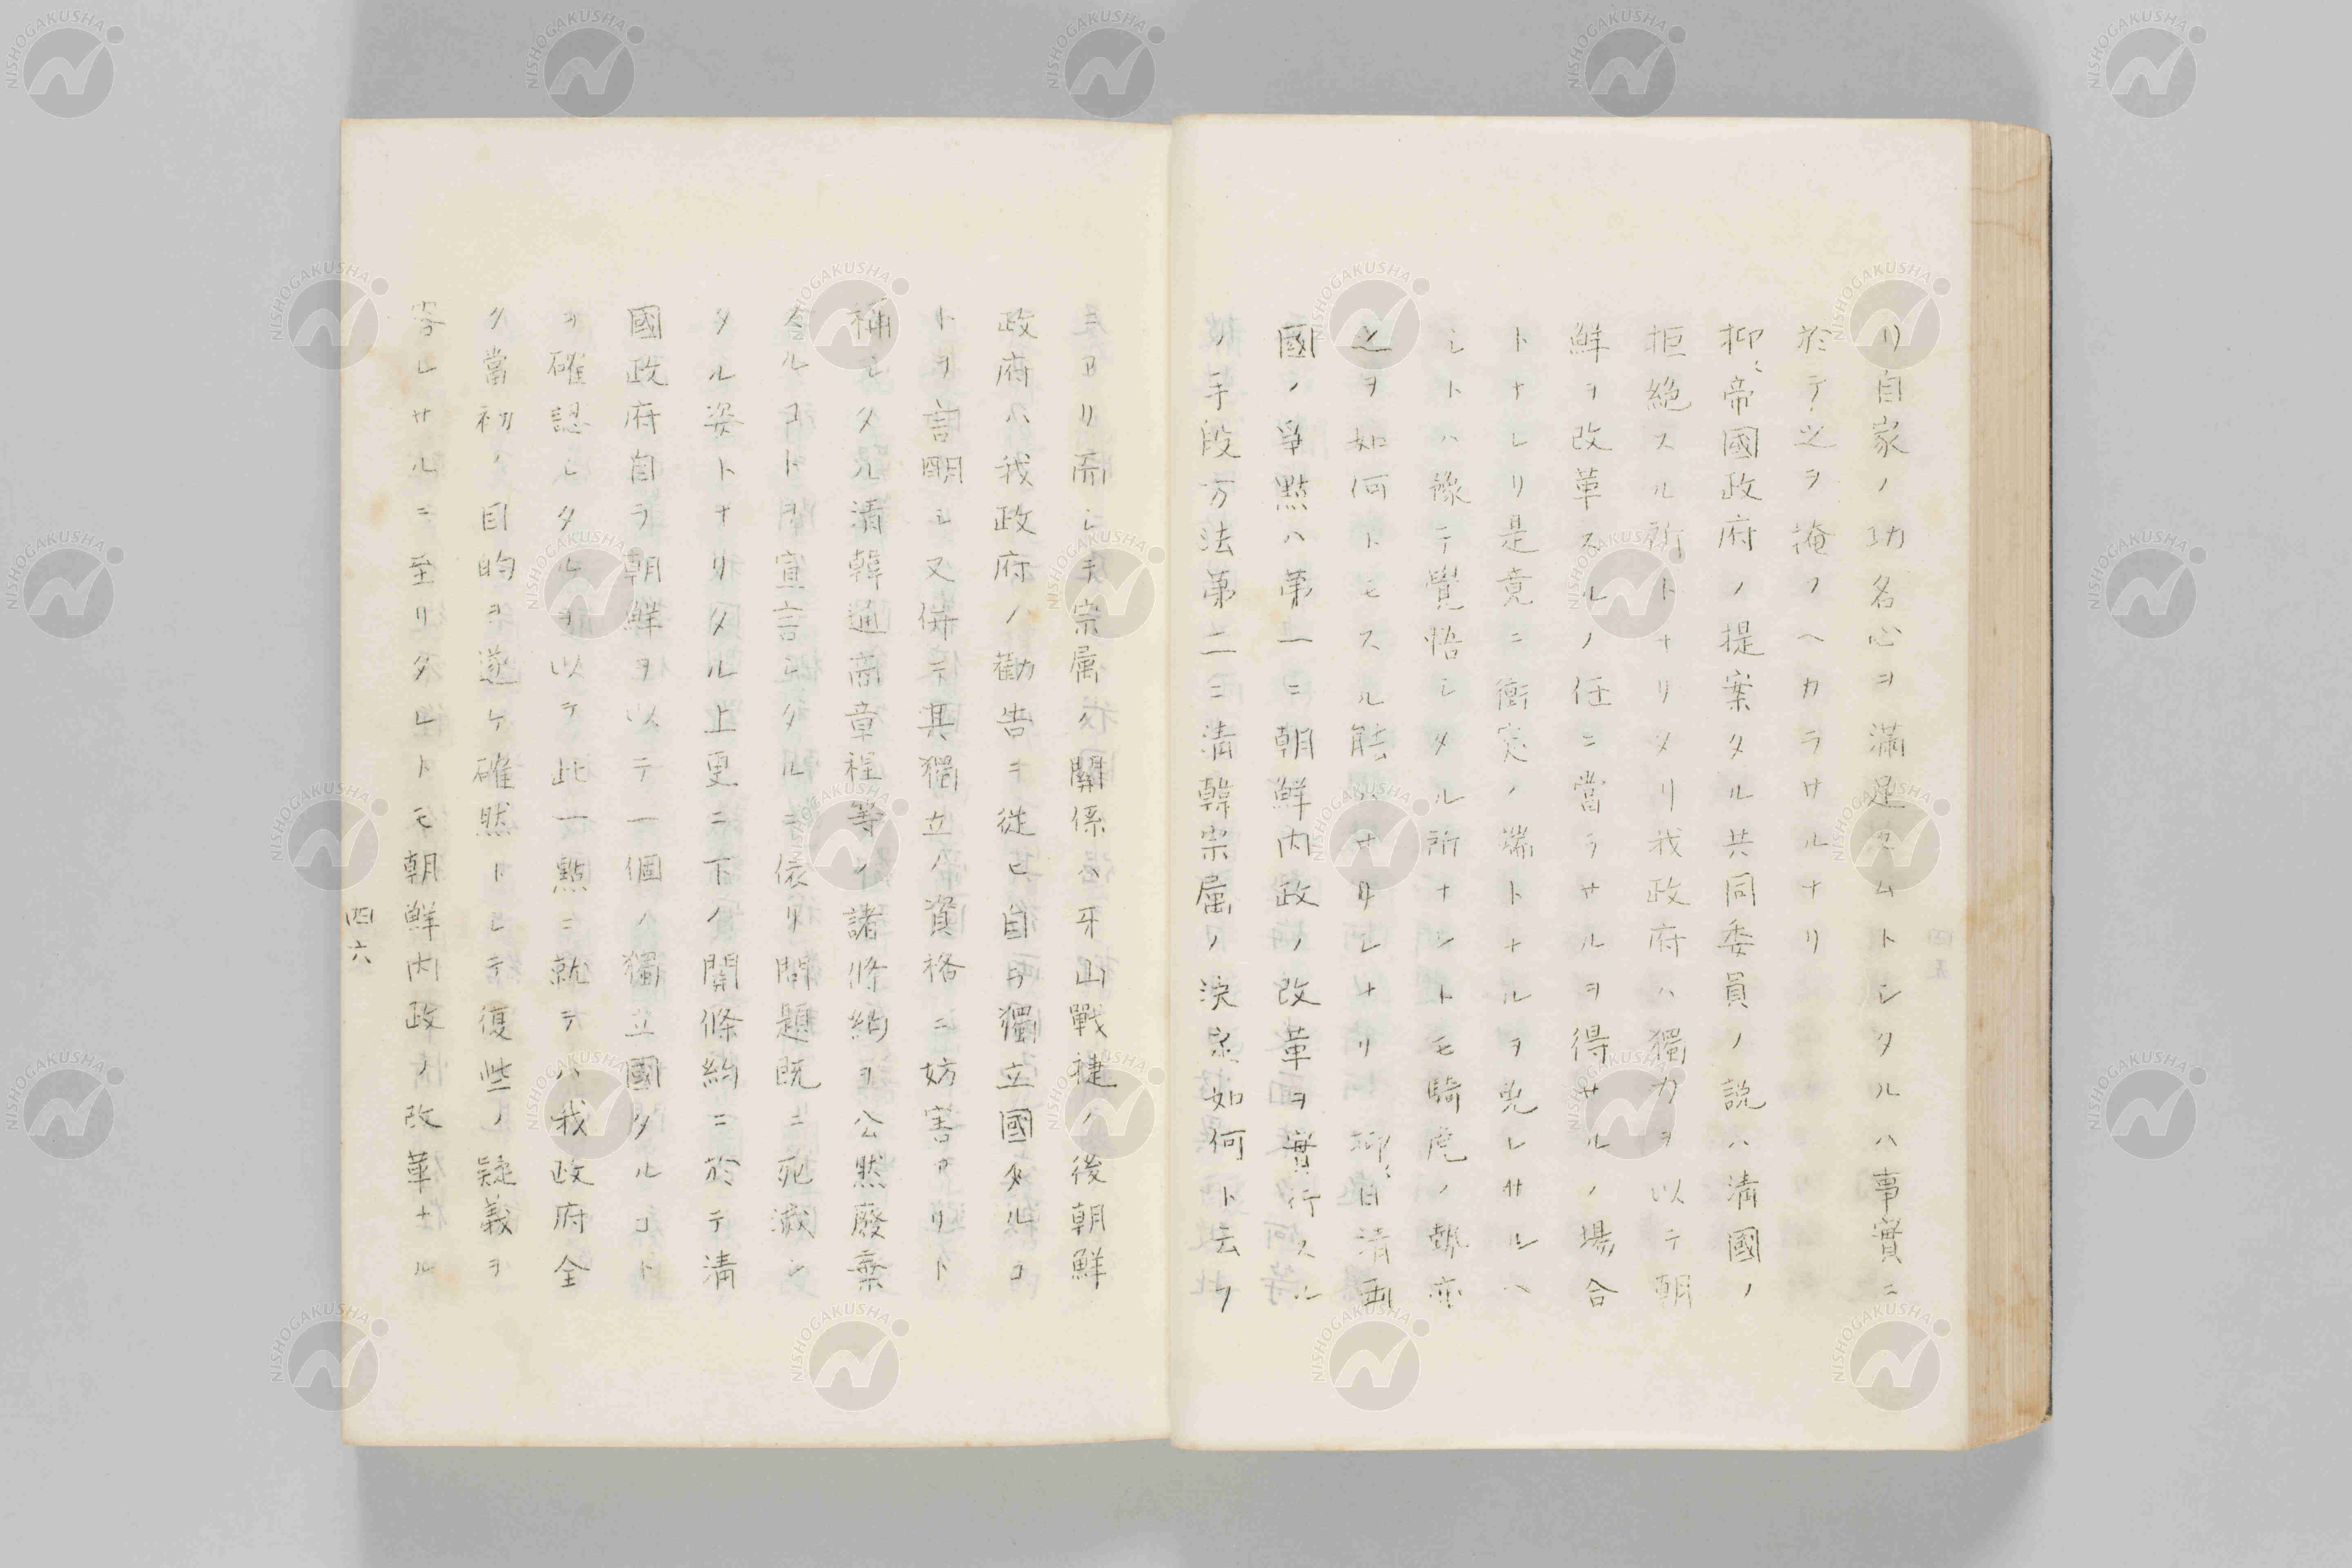 リ自家ノ功名心ヲ滿足セムトシタルハ事實ニ
於テ之ヲ掩フヘカラサルナリ
抑〻帝國政府ノ提案タル共同委員ノ説ハ清國ノ
拒絶スル所トナリタリ我政府ハ獨力ヲ以テ朝
鮮ヲ改革スルノ任ニ當ラサルヲ得サルノ場合
トナレリ是竟ニ衝突ノ端トナルヲ免レサルヘ
シトハ豫テ覺悟シタル所ナレトモ騎虎ノ勢亦
之ヲ如何トモスル能ハサルシナリ抑〻日清兩
國ノ爭點ハ第一ニ朝鮮内政ノ改革ヲ實行スル
ノ手段方法第二ニ清韓宗属ノ決定如何ト云フ
ニアリ而シテ宗属ノ關係ハ牙山戰捷ノ後朝鮮
政府ハ我政府ノ勸告ヲ從ヒ自ラ獨立國タルコ
トヲ言明シ又併テ其獨立ノ資格ニ妨害アリト
稱シタル清韓通商章程等ノ諸條約ヲ公然廢棄
スルコトヲ宣言シタルニ依リ問題既ニ死滅シ
タル姿トナリタル上更ニ下ノ關條約ニ於テ清
國政府自ラ朝鮮ヲ以テ一個ノ獨立國タルコト
ヲ確認シタルヲ以テ此一點ニ就テハ我政府全
ク當初ノ目的ヲ遂ケ確然トシテ復些ノ疑義ヲ
容レサルニ至リタレトモ朝鮮内政ノ改革ナル
四六
四五
NISHOGAKUSHA